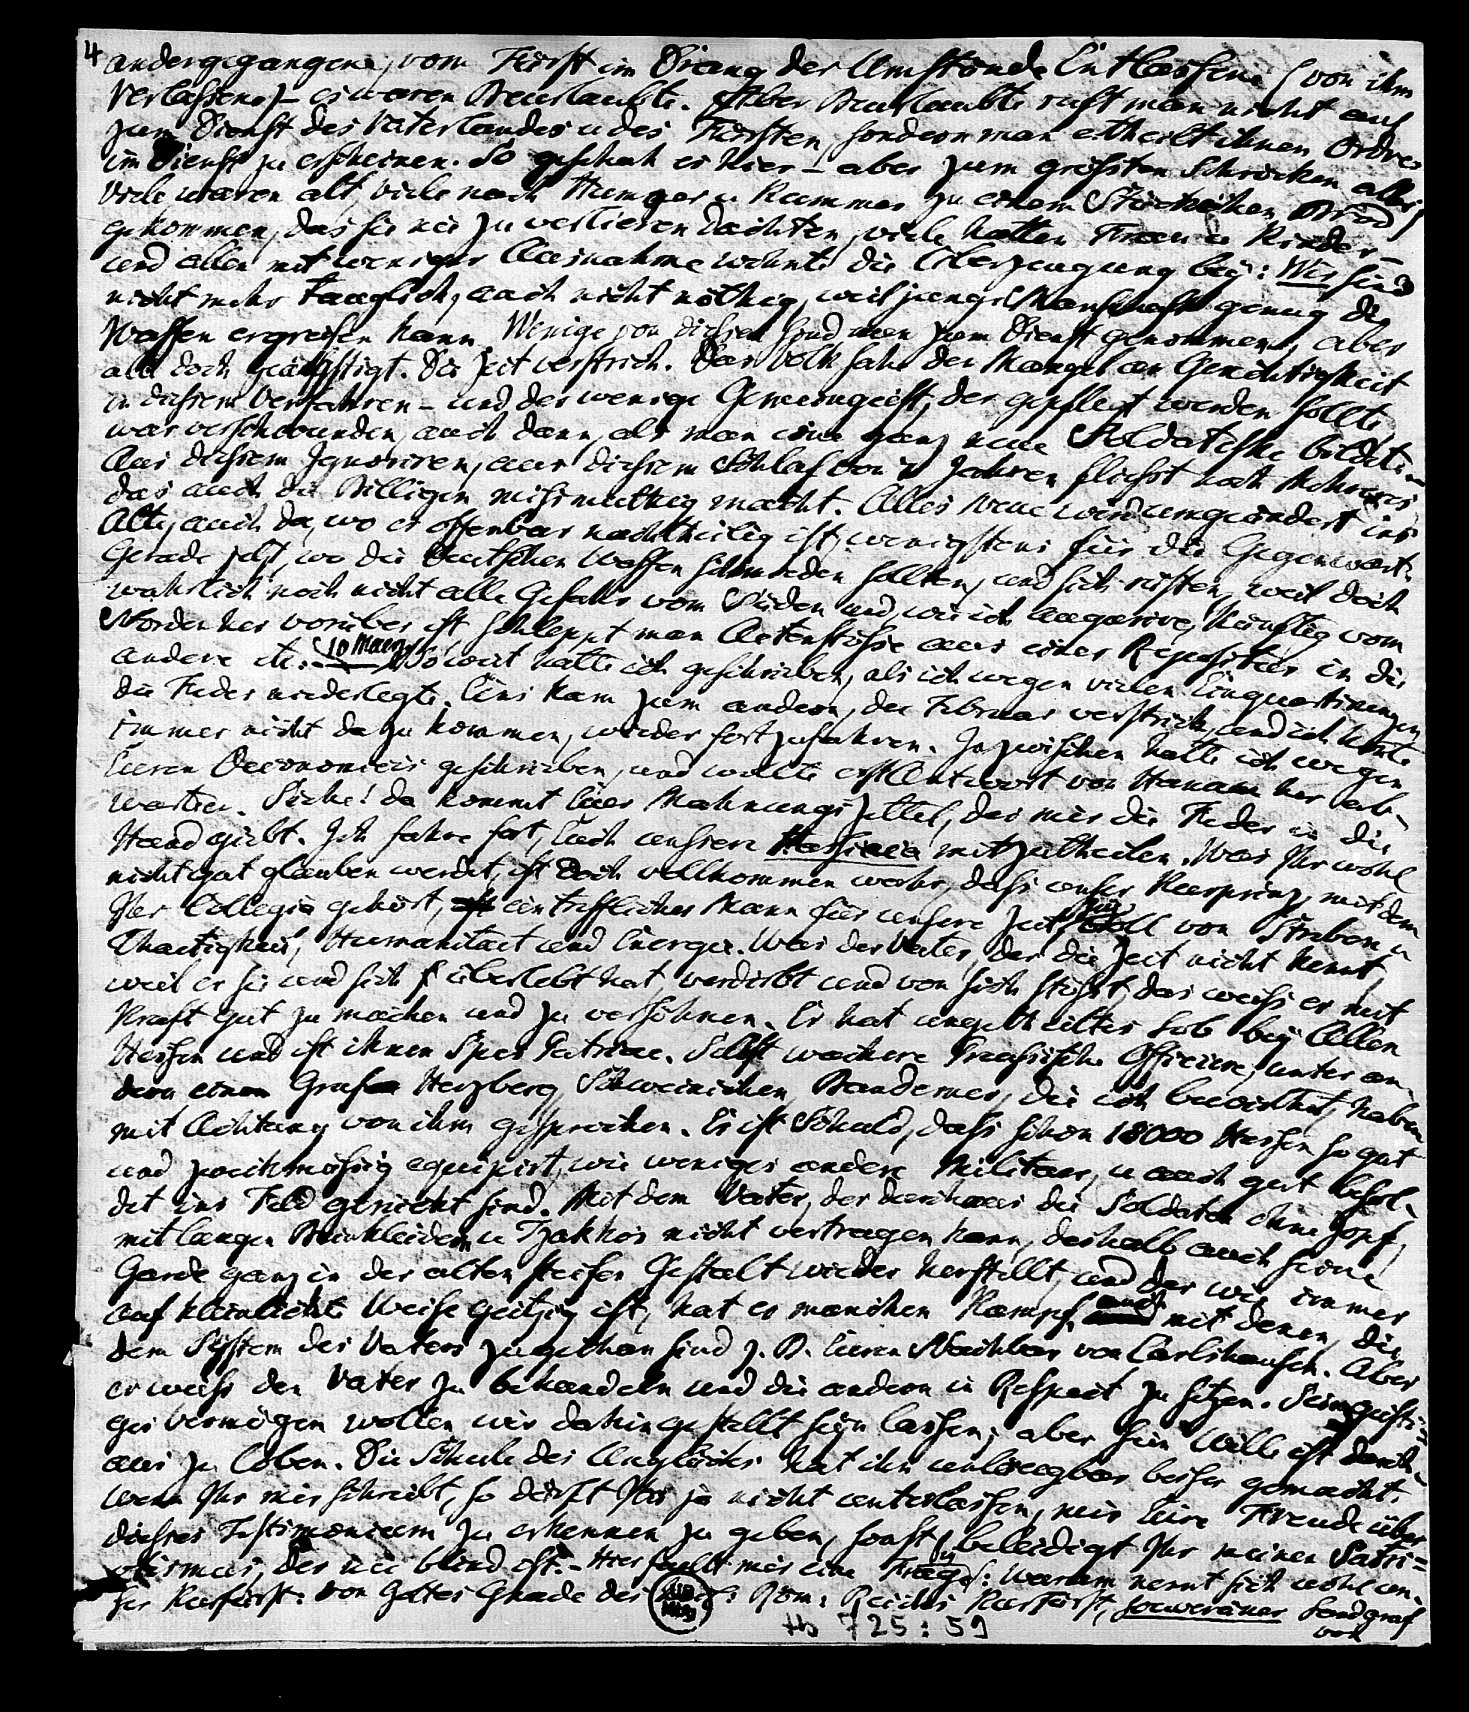 4 andergegangene, vom Fürst im Drang der Umstände Entlassene (von ihm
Verlassene) – es waren Beurlaubte. Aber Beurlaubte ruft man nicht auf
zum Dienst des Vaterlandes u des Fürsten, sondern man ertheilt ihnen Ordres
im Dienst zu erscheinen. So geschah es hier – aber zum grössten Schrecken aller,
viele waren alt, viele nach Hunger u Kummer zu einem Stückchen Brod
gekommen, das sie nie zu verlieren dachten, viele hatten Frau u Kinder –
und allen mit weniger Ausnahme wohnte die Ueberzeugung bey: Wir sind
nicht mehr tauglich, auch nicht nöthig, weil junge Mannschaft genug die
Waffen ergreifen kann. Wenige von diesen sind nun zum Dienst genommen, aber
alle doch geängstigt. Die Zeit verstrich. Das Volk sahe den Mangel an Gerechtigkeit
in diesem Verfahren – und der wenige Gemeingeist, der gepflegt werden sollte,
war verschwunden, auch dann, als man eine ganz neue Soldateske bildete.
Aus diesem Ignoriren, aus diesem Schlaf von 7 Jahren fliesst noch mehreres,
das auch die Billigen missmuthig macht. Alles neue wird umgeändert ins
Alte, auch da, wo es offenbar nachtheilig ist, wenigstens für die Gegenwart.
Gerade jetzt, wo die Deutschen Waffen schmieden sollten, und sich rüsten, weil doch
wahrlich noch nicht alle Gefahr vom Süden und, wie ich augurire, künftig vom
Norden her vorüber ist schleppt man Actenstösse aus einer Repositur in die
andere etc. 10 Maerz So weit hatte ich geschrieben, als ich wegen vielen Einquartirungen
die Feder niederlegte. Eins kam zum andern, der Februar verstrich, und ich konte
immer nicht dazu kommen, wieder fortzufahren. Inzwischen hatte ich wegen
Eueren Oeconomicis geschrieben, und wollte erst Antwort von Hanau her ab-
warten. Siehe! da kommt Euer Mahnungszettel, der mir die Feder in die
Hand giebt. Ich fahre fort, Euch unsere Hassiaca mitzutheilen. Was Ihr wohl
nicht gut glauben werdet, ist doch vollkommen wahr, dass unser Kurprinz, mit dem
Ihr Collegia gehört, ein trefflicher Mann für unsere Zeit ist voll von Streben u
Thaetigkeit, Humanitaet und Energie. Was der Vater, der die Zeit nicht kennt,
weil er sie und sich überlebt hat, verdirbt und von sich stösst, das weiss er mit
Kraft gut zu machen und zu versöhnen. Er hat ungetheiltes Lob bey Allen
Hessen und ist ihnen Spes Patriae. Selbst wackere Preussische Officiere, unter an-
dern Graf Herzberg, Schweinichen, Brandemer, die ich bewirthet, haben
mit Achtung von ihm gesprochen. Er ist Schuld, dass schon 18000 Hessen so gut
und zweckmässig equipirt, wie weniges andere Militaer, u auch gut besol-
det ins Feld gerückt sind. Mit dem Vater, der durchaus die Soldaten ohne Zopf,
mit langen Beinkleidern u Tzakko's nicht vertragen kann, deshalb auch seine
Garde ganz in der alten steifen Gestalt wieder herstellt, und der wie immer
auf kleinliche Weise geitzig ist, hat er manchen Kampf, auch mit denen, die
dem Sÿstem des Vaters zugethan sind z. B. Eueren Nachbar von Carlshausen. Aber
er weiss den Vater zu behandeln und die andern in Respect zu setzen. Sein geisti-
ges Vermögen wollen wir dahin gestellt seÿn lassen; aber sein Wille ist durch-
aus zu loben. Die Schule des Unglücks hat ihn unleugbar besser gemacht.
Wenn Ihr mir schreibt, so dürft Ihr ja nicht unterlassen, mir Eure Freude über
dieses Testimonium zu erkennen zu geben, sonst beleidigt Ihr meinen Patri-
otismus, der nie blind ist. – Hier faellt mir eine Frage ein: warum nennt sich wohl un-
ser Kurfürst: von Gottes Gnade des Röm: Reichs Kurfürst, souveräner Landgraf
von
Hs 725:59